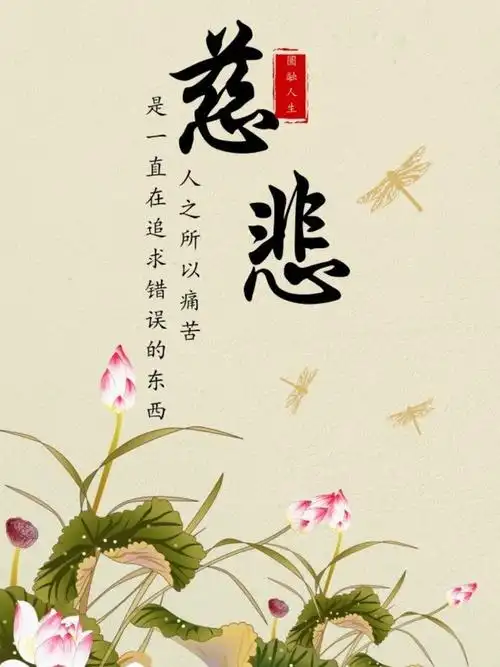 慈悲
圓融人生
人之所以痛苦
是一直在追求错误的东西